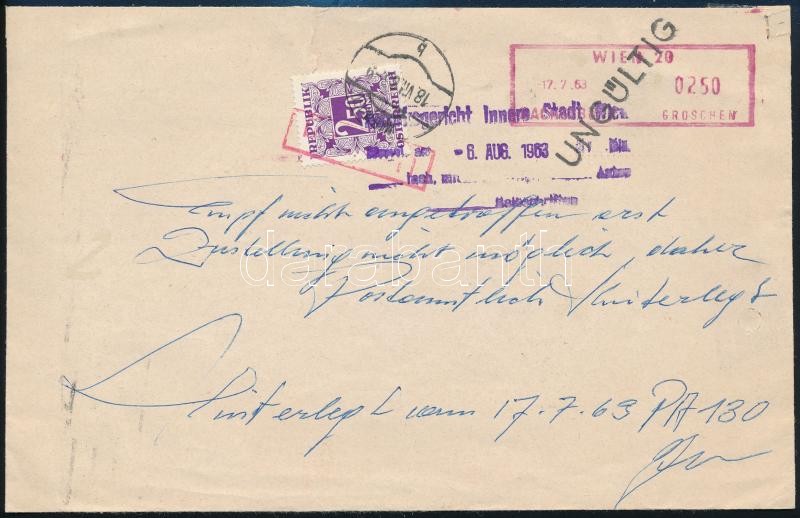 WIEN 20
17.7.63
0250
GROSCHEN
UNGÜLTIG
REPUBLIK
2.50
ÖSTERREICH
18.VII
Innere Stadt
-6. AUG. 1963
Empf nicht angetroffen erst
Zustellung nicht möglich, daher
Postamtlich hinterlegt
darabanth
Hinterlegt vom 17.7.63 PA 130